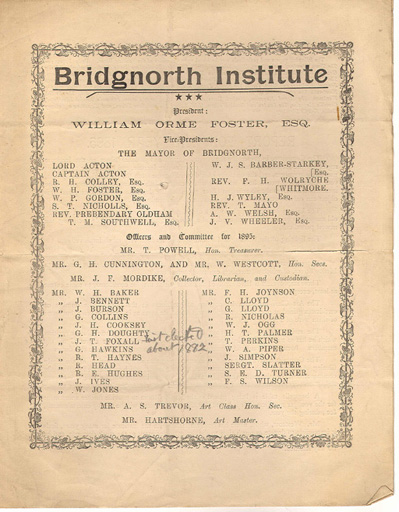 Bridgnorth Institute
★★★
President:
WILLIAM ORME FOSTER, ESQ.
Vice-Presidents:
THE MAYOR OF BRIDGNORTH,
LORD ACTON
CAPTAIN ACTON
R. H. COLLEY, Esq.
W. H. FOSTER, Esq.
W. P. GORDON, Esq.
S. T. NICHOLLS, Esq.
REV. PREBENDARY OLDHAM
T. M. SOUTHWELL, Esq.
W. J. S. BARBER-STARKEY,
[Esq.
REV. F. H. WOLRYCHE
[WHITMORE.
H. J. WYLEY, Esq.
REV. T. MAYO
A. W. WELSH, Esq.
J. V. WHEELER, Esq.
Officers and Committee for 1895:
MR. T. POWELL, Hon. Treasurer.
MR. G. H. CUNNINGTON, AND MR. W. WESTCOTT, Hon. Secs.
MR. J. F. MORDIKE, Collector, Librarian, and Custodian.
MR. W. H. BAKER
„ J. BENNETT
„ J. BURSON
„ G. COLLINS
„ J. H. COOKSEY
„ G. H. DOUGHTY
„ J. T. FOXALL first elected
„ G. HAWKINS about 1882
„ R. T. HAYNES
„ R. HEAD
„ R. E. HUGHES
„ J. IVES
„ W. JONES
MR. F. H. JOYNSON
„ C. LLOYD
„ G. LLOYD
„ R. NICHOLAS
„ W. J. OGG
„ H. T. PALMER
„ T. PERKINS
„ W. A. PIPER
„ J. SIMPSON
„ SERGT. SLATTER
„ S. E. D. TURNER
„ F. S. WILSON
MR. A. S. TREVOR, Art Class Hon. Sec.
MR. HARTSHORNE, Art Master.